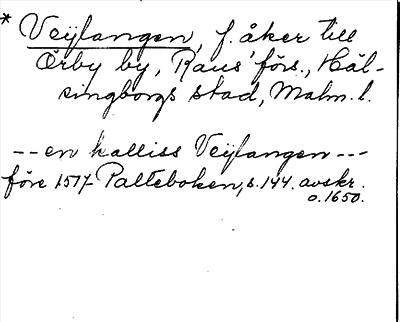 * Veÿlangen, f. åker till
Örby by, Raus' förs., Häl-
singborgs stad, Malm. l.
-- en kalliss Veÿlangen ---
före 1517 Palteboken, s. 144. avskr.
o. 1650.